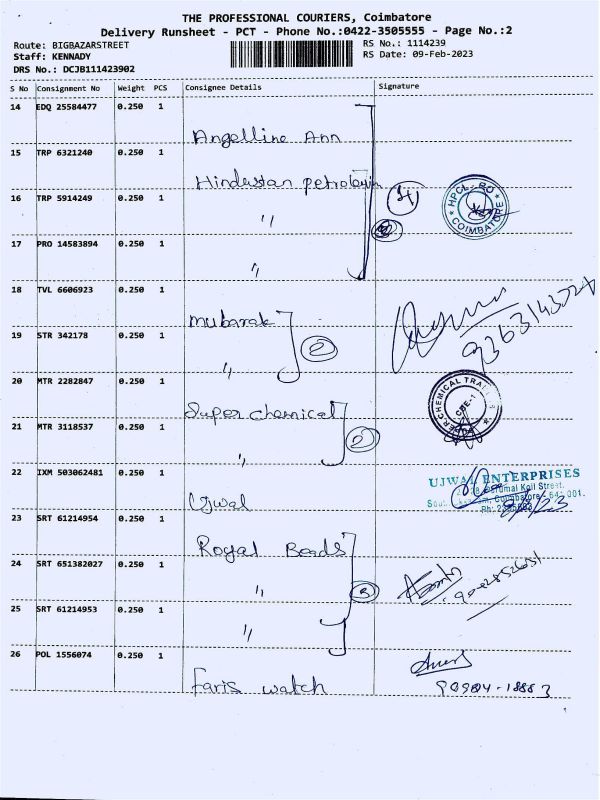 THE PROFESSIONAL COURIERS, Coimbatore
Delivery Runsheet - PCT - Phone No.:0422-3505555 - Page No.:2
Route: BIGBAZARSTREET
Staff: KENNADY
DRS No.: DCJB111423902
RS No.: 1114239
RS Date: 09-Feb-2023
S No Consignment No Weight PCS Consignee Details Signature
14 EDQ 25584477 0.250 1
Angelline Ann
15 TRP 6321240 0.250 1
Hindustan petroleum
16 TRP 5914249 0.250 1
"
HPCL - RO
COIMBATORE
17 PRO 14583894 0.250 1
"
18 TVL 6606923 0.250 1
mubarak
19 STR 342178 0.250 1
" 2
20 MTR 2282847 0.250 1
Super chemical
CHEMICAL
CBE-1
21 MTR 3118537 0.250 1
" 2
22 IXM 503062481 0.250 1
Ujwal
UJWAL ENTERPRISES
Perumal Koil Street,
Coimbatore - 641 001.
Ph:
23 SRT 61214954 0.250 1
Royal Beads
24 SRT 651382027 0.250 1
" 3
25 SRT 61214953 0.250 1
"
26 POL 1556074 0.250 1
Faris watch
1